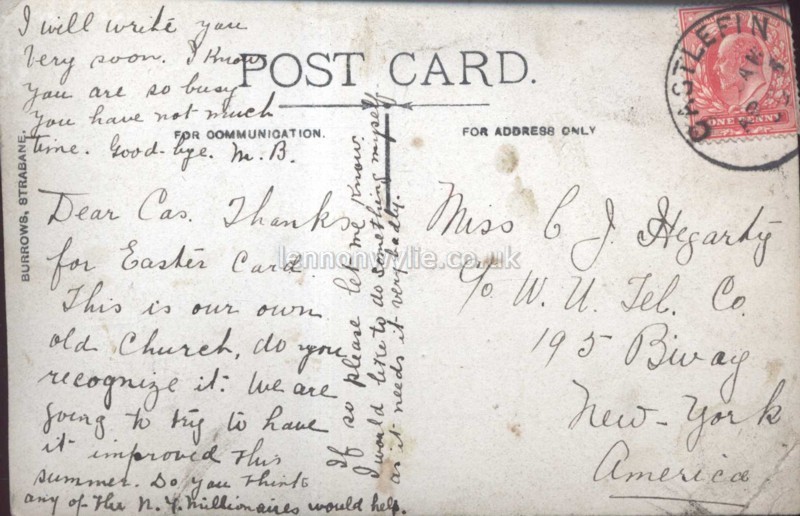 POST CARD.
FOR COMMUNICATION.
FOR ADDRESS ONLY
BURROWS, STRABANE.
Dear Cas. Thanks
for Easter Card.
This is our own
old Church, do you
recognize it. We are
going to try to have
it improved this
summer. Do you think
any of the N.Y. Millionaires would help.
If so please let me know.
I would like to do something myself
as it needs it very badly.
I will write you
very soon. I know
you are so busy
you have not much
time. Good-bye. M.B.
Miss C J. Hegarty
c/o W. U. Tel. Co.
195 Biway
New-York
America
CASTLEFIN
ONE PENNY
lennonwylie.co.uk